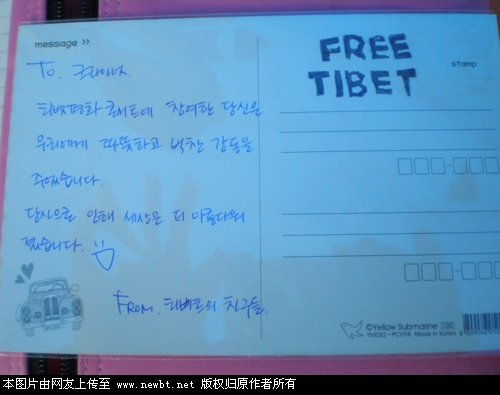 message >>
To. 크라잉넛
티벳평화 콘서트에 참여한 당신은
우리에게 따뜻하고 벅찬 감동을
주었습니다.
당신으로 인해 세상은 더 아름다워
졌습니다.
FROM. 티베트의 친구들.
FREE
TIBET
stamp
©Yellow Submarine
YM082-PC098 Made in Korea
本图片由网友上传至 www.newbt.net 版权归原作者所有